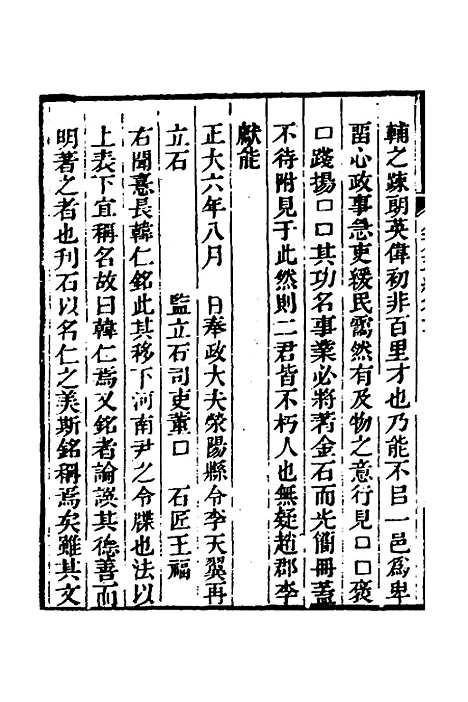 輔之疎朗英偉初非百里才也乃能不㠯一邑爲卑
畱心政事急吏緩民靄然有及物之意行見口口褒
口踐揚口口其功名事業必將著金石而光簡冊蓋
不待附見于此然則二君皆不朽人也無疑趙郡李
獻能
正大六年八月　日奉政大夫滎陽縣令李天翼再
立石　　　監立石司吏董口　石匠王福
右聞憙長韓仁銘此其移下河南尹之令牒也法以
上表下宜稱名故曰韓仁焉又銘者論譔其德善而
明著之者也刊石以名仁之美斯銘稱焉矣雖其文